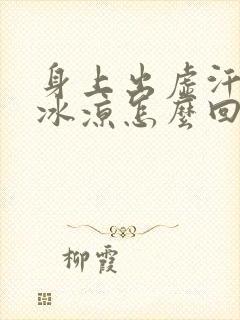 身上出虛汗
冰涼怎麼回
柳霞